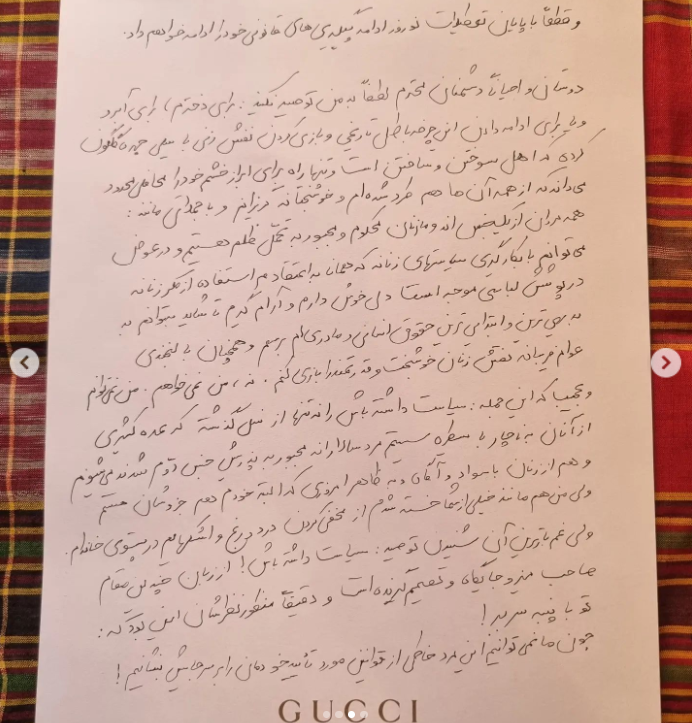 و قطعاً با پایان تعطیلات نوروز ادامه پیگیری‌های قانونی خود را ادامه خواهم داد.
دوستان و احیاناً دشمنان محترم لطفاً به من توصیه نکنید: برای دخترم، برای آبرو
و یا برای ادامه دادن این چرخه باطل تاریخی و بازی کردن نقش زنی با سیلی چهره گلگون
کرده که اهل سوختن و ساختن است و تنها راه برای ابراز خشم خود را محافلی محدود
می‌داند که از همه آن‌ها هم طرد شده‌ام و خوشبختانه گریزانم و با جملاتی مانند:
همه مردان از یک جنس‌اند و ما زنان محکوم و مجبور به تحمل ظلم هستیم و در عوض
می‌توانیم با بکارگیری سیاستهای زنانه که همانا به اعتقادم استفاده از مکر زنانه
در پوشش لباسی موجه است دل خوش دارم و آرام گیرم تا شاید بتوانم به
به بدیهی‌ترین و ابتدایی‌ترین حقوق انسانی و مادری‌ام برسم و همچنان با لبخندی
عوام فریبانه نقش زنان خوشبخت و قدرتمند را بازی کنم. نه، من نمی‌خواهم. من نمی‌توانم
و عجیب که این جمله: سیاست داشته باش را نه تنها از نسل گذشته که عمده کثیری
از آنان به ناچار با سیطره سیستم مردسالارانه مجبور به پذیرش جنس دوم شدند می‌شنویم
و هم از زنان باسواد و آگاه و به ظاهر امروزی که البته خودم هم جزوشان هستم
ولی من هم مانند خیلی از شما خسته شدم از مخفی کردن درد و رنج و اشکهایم در پستوی خانه‌ام.
ولی غم بارترین آن شنیدن توصیه: سیاست داشته باش! از زبان چندین مقام
صاحب میز و جایگاه و تصمیم گیرنده است و دقیقاً منظور نظرشان این بود که:
تو با پنبه سر ببر!
چون ما نمی‌توانیم این مرد خاطی از قوانین مورد تأیید خودمان را بر سر جایش بنشانیم!
GUCCI